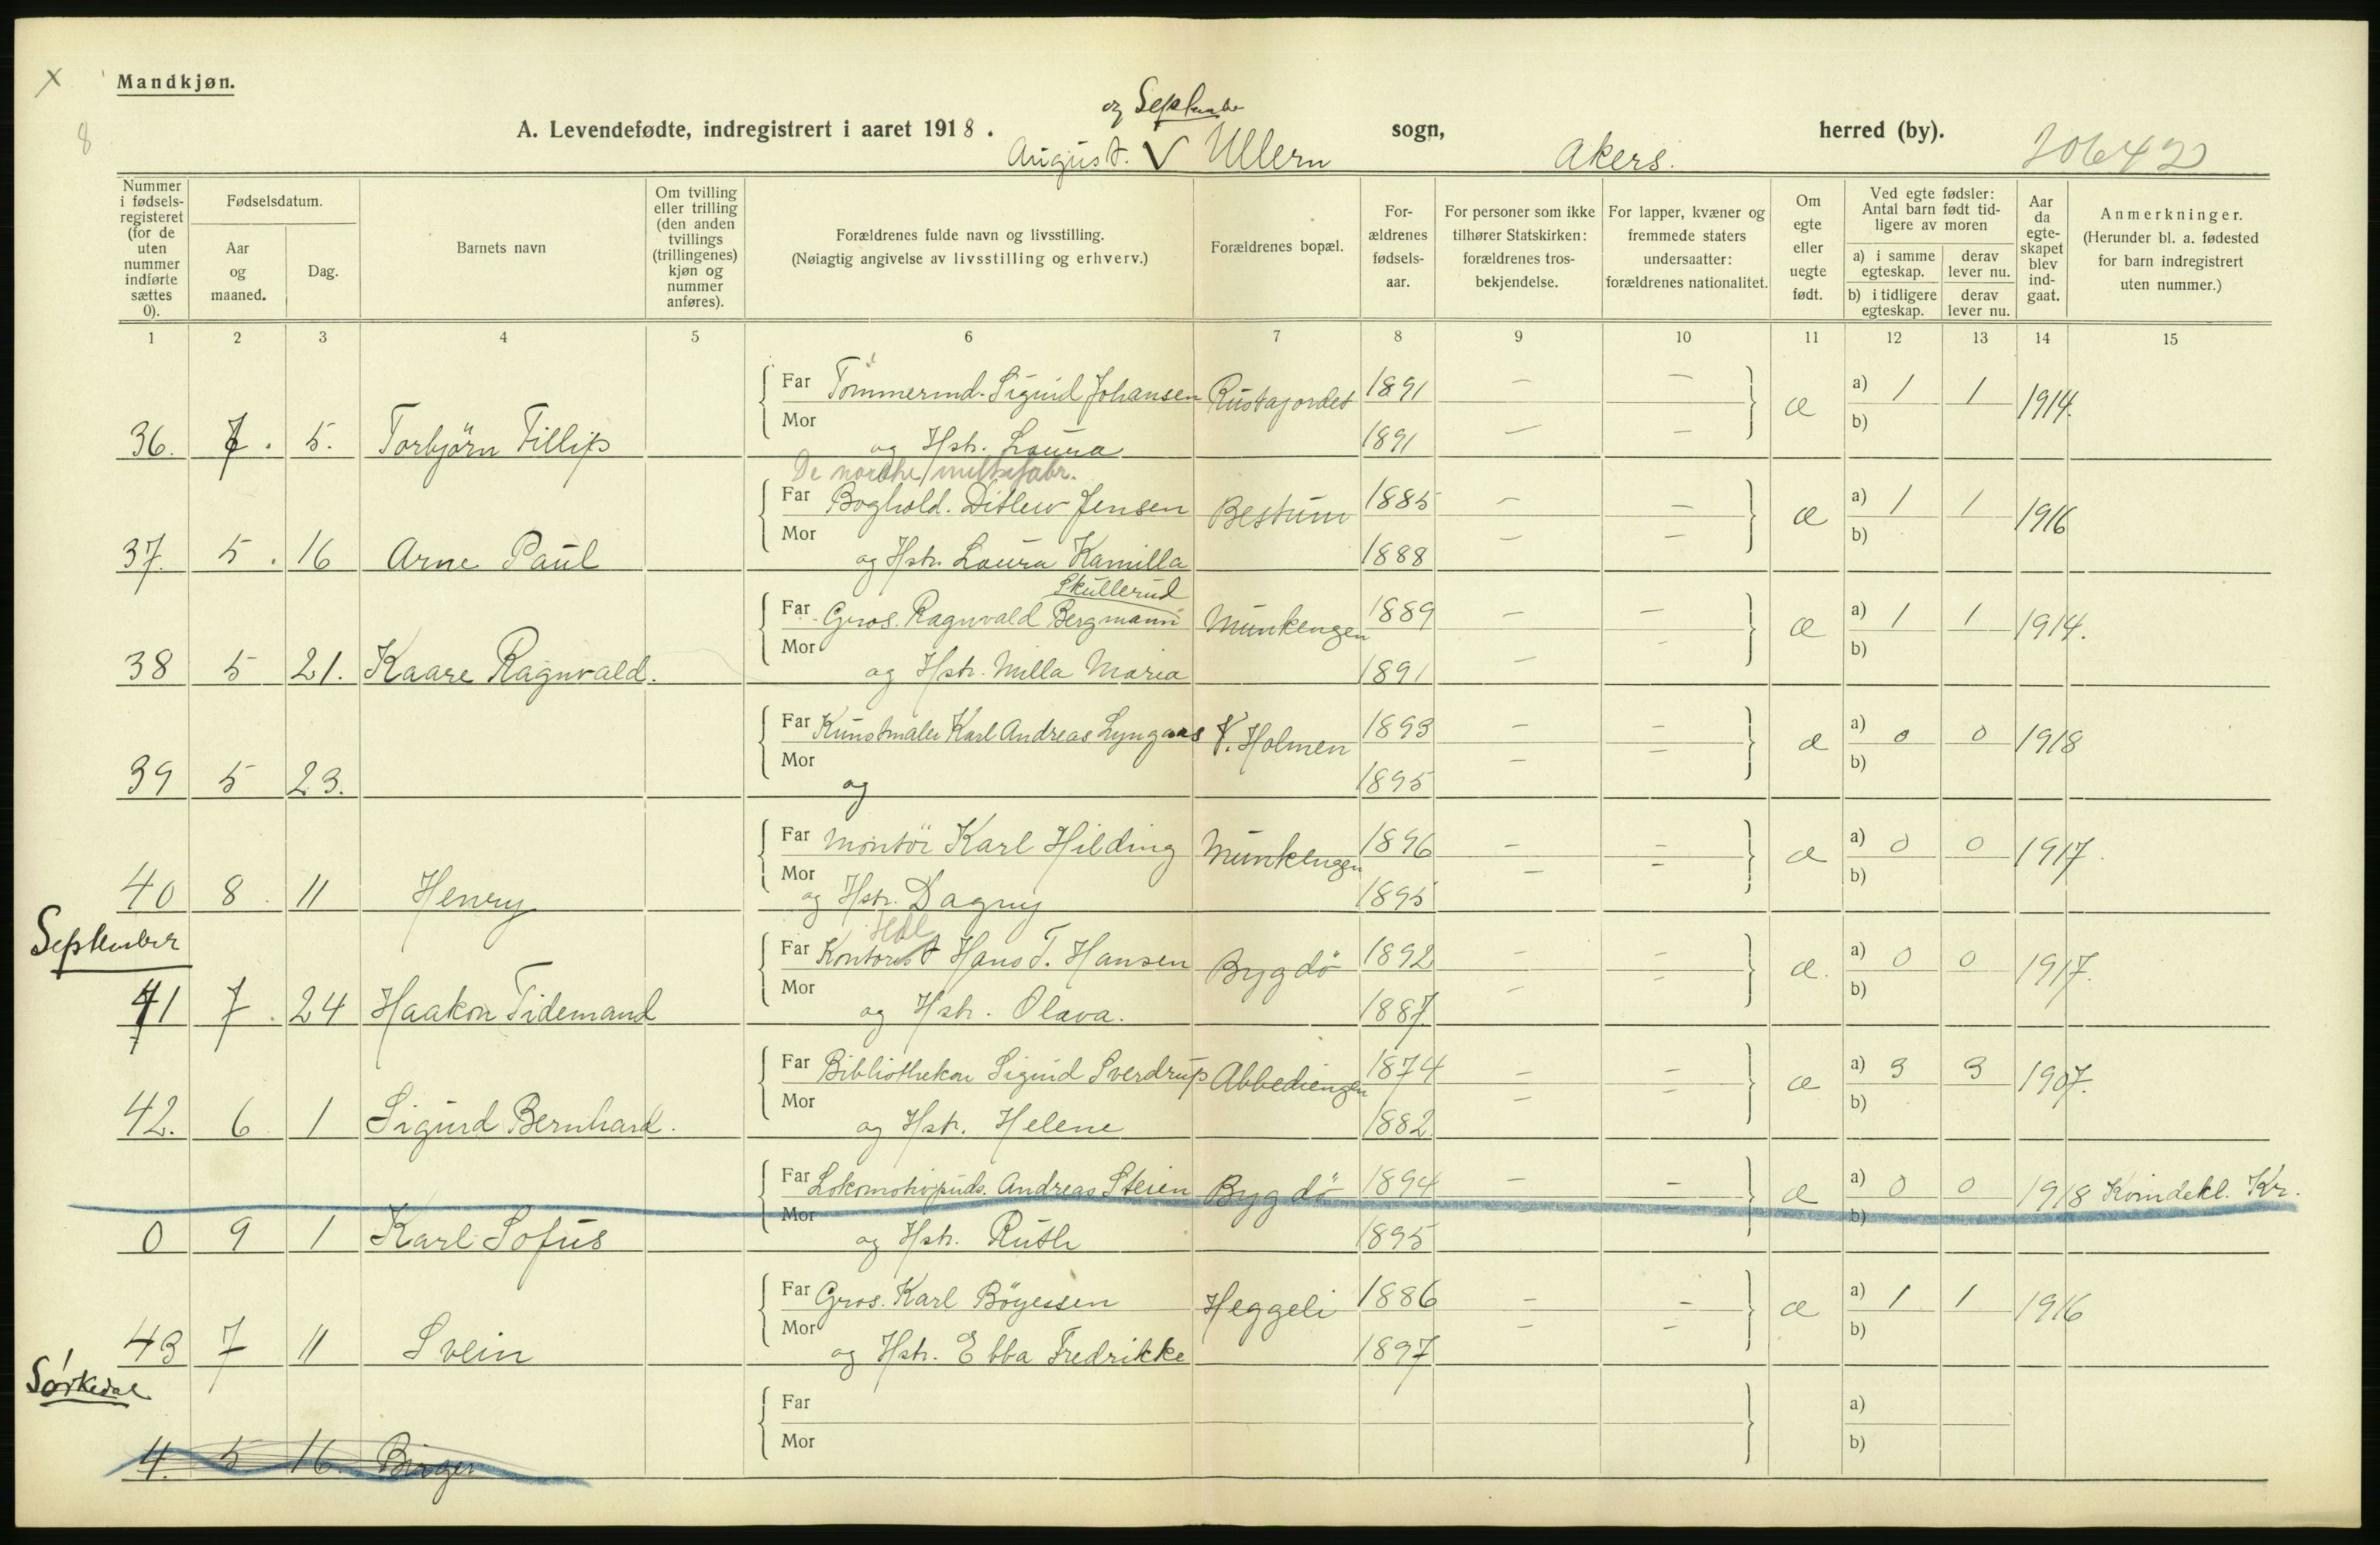 Mandkjøn.
8
og September
A. Levendefødte, indregistrert i aaret 1918. August. V Ullern sogn, Akers. herred (by).
Nummer i fødsels-registeret (for de uten nummer indførte sættes 0).
Fødselsdatum.
Aar og maaned.
Dag.
Barnets navn
Om tvilling eller trilling (den anden tvillings (trillingenes) kjøn og nummer anføres).
Forældrenes fulde navn og livsstilling.
(Nøiagtig angivelse av livsstilling og erhverv.)
Forældrenes bopæl.
For-ældrenes fødsels-aar.
For personer som ikke tilhører Statskirken: forældrenes tros-bekjendelse.
For lapper, kvæner og fremmede staters undersaatter: forældrenes nationalitet.
Om egte eller uegte født.
Ved egte fødsler: Antal barn født tid-ligere av moren
a) i samme egteskap.
derav lever nu.
b) i tidligere egteskap.
derav lever nu.
Aar da egte-skapet blev ind-gaat.
Anmerkninger.
(Herunder bl. a. fødested for barn indregistrert uten nummer.)
1 2 3 4 5 6 7 8 9 10 11 12 13 14 15
Far Tömmermd. Sigurd Johansen Rustajordet 1891 — — æ a) 1 1 1914.
Mor b)
36. 7. 5. Torbjörn Fillip og Hstr. Laura 1891 — —
De norske
Far Boghold. Ditlew Jensen Bestum 1885 — — æ a) 1 1 1916
Mor — — b)
37. 5. 16 Arne Paul og Hstr. Laura Kamilla 1888
Skullerud
Far Gros. Ragnvald Bergmann Munkengen 1889 — — æ a) 1 1 1914.
Mor — b)
38 5 21. Kaare Ragnvald. og Hstr. Milla Maria 1891 —
Far Kunstmaler Karl Andreas Lyngaas V. Holmen 1893 — — æ a) 0 0 1918
Mor — — b)
39 5 23. og 1895
Far Montör Karl Hilding Munkengen 1896 — — æ a) 0 0 1917.
Mor — — b)
40 8. 11 Henry og Hstr. Dagny 1895
September
Far Kontorist Hans T. Hansen Bygdö 1892 — — æ. a) 0 0 1917.
Mor — — b)
41 7. 24 Haakon Tidemand og Hstr. Olava. 1887.
Far Bibliothekar Sigurd Sverdrup Abbediengen 1874 — — æ a) 3 3 1907.
Mor — — b)
42. 6 1 Sigurd Bernhard. og Hstr. Helene 1882.
Far Lokomotivpuds. Andreas Steien Bygdö 1894 — — æ a) 0 0 1918 Kvindekl. Kr.
Mor b)
0 9 1 Karl Sofus og Hstr. Ruth 1895
Far Gros. Karl Böyessen Heggeli 1886 — — æ a) 1 1 1916
Mor — — b)
43 7 11 Svein og Hstr. Ebba Fredrikke 1897
Sörkedal
Far a)
Mor b)
4. 5 16. Birger